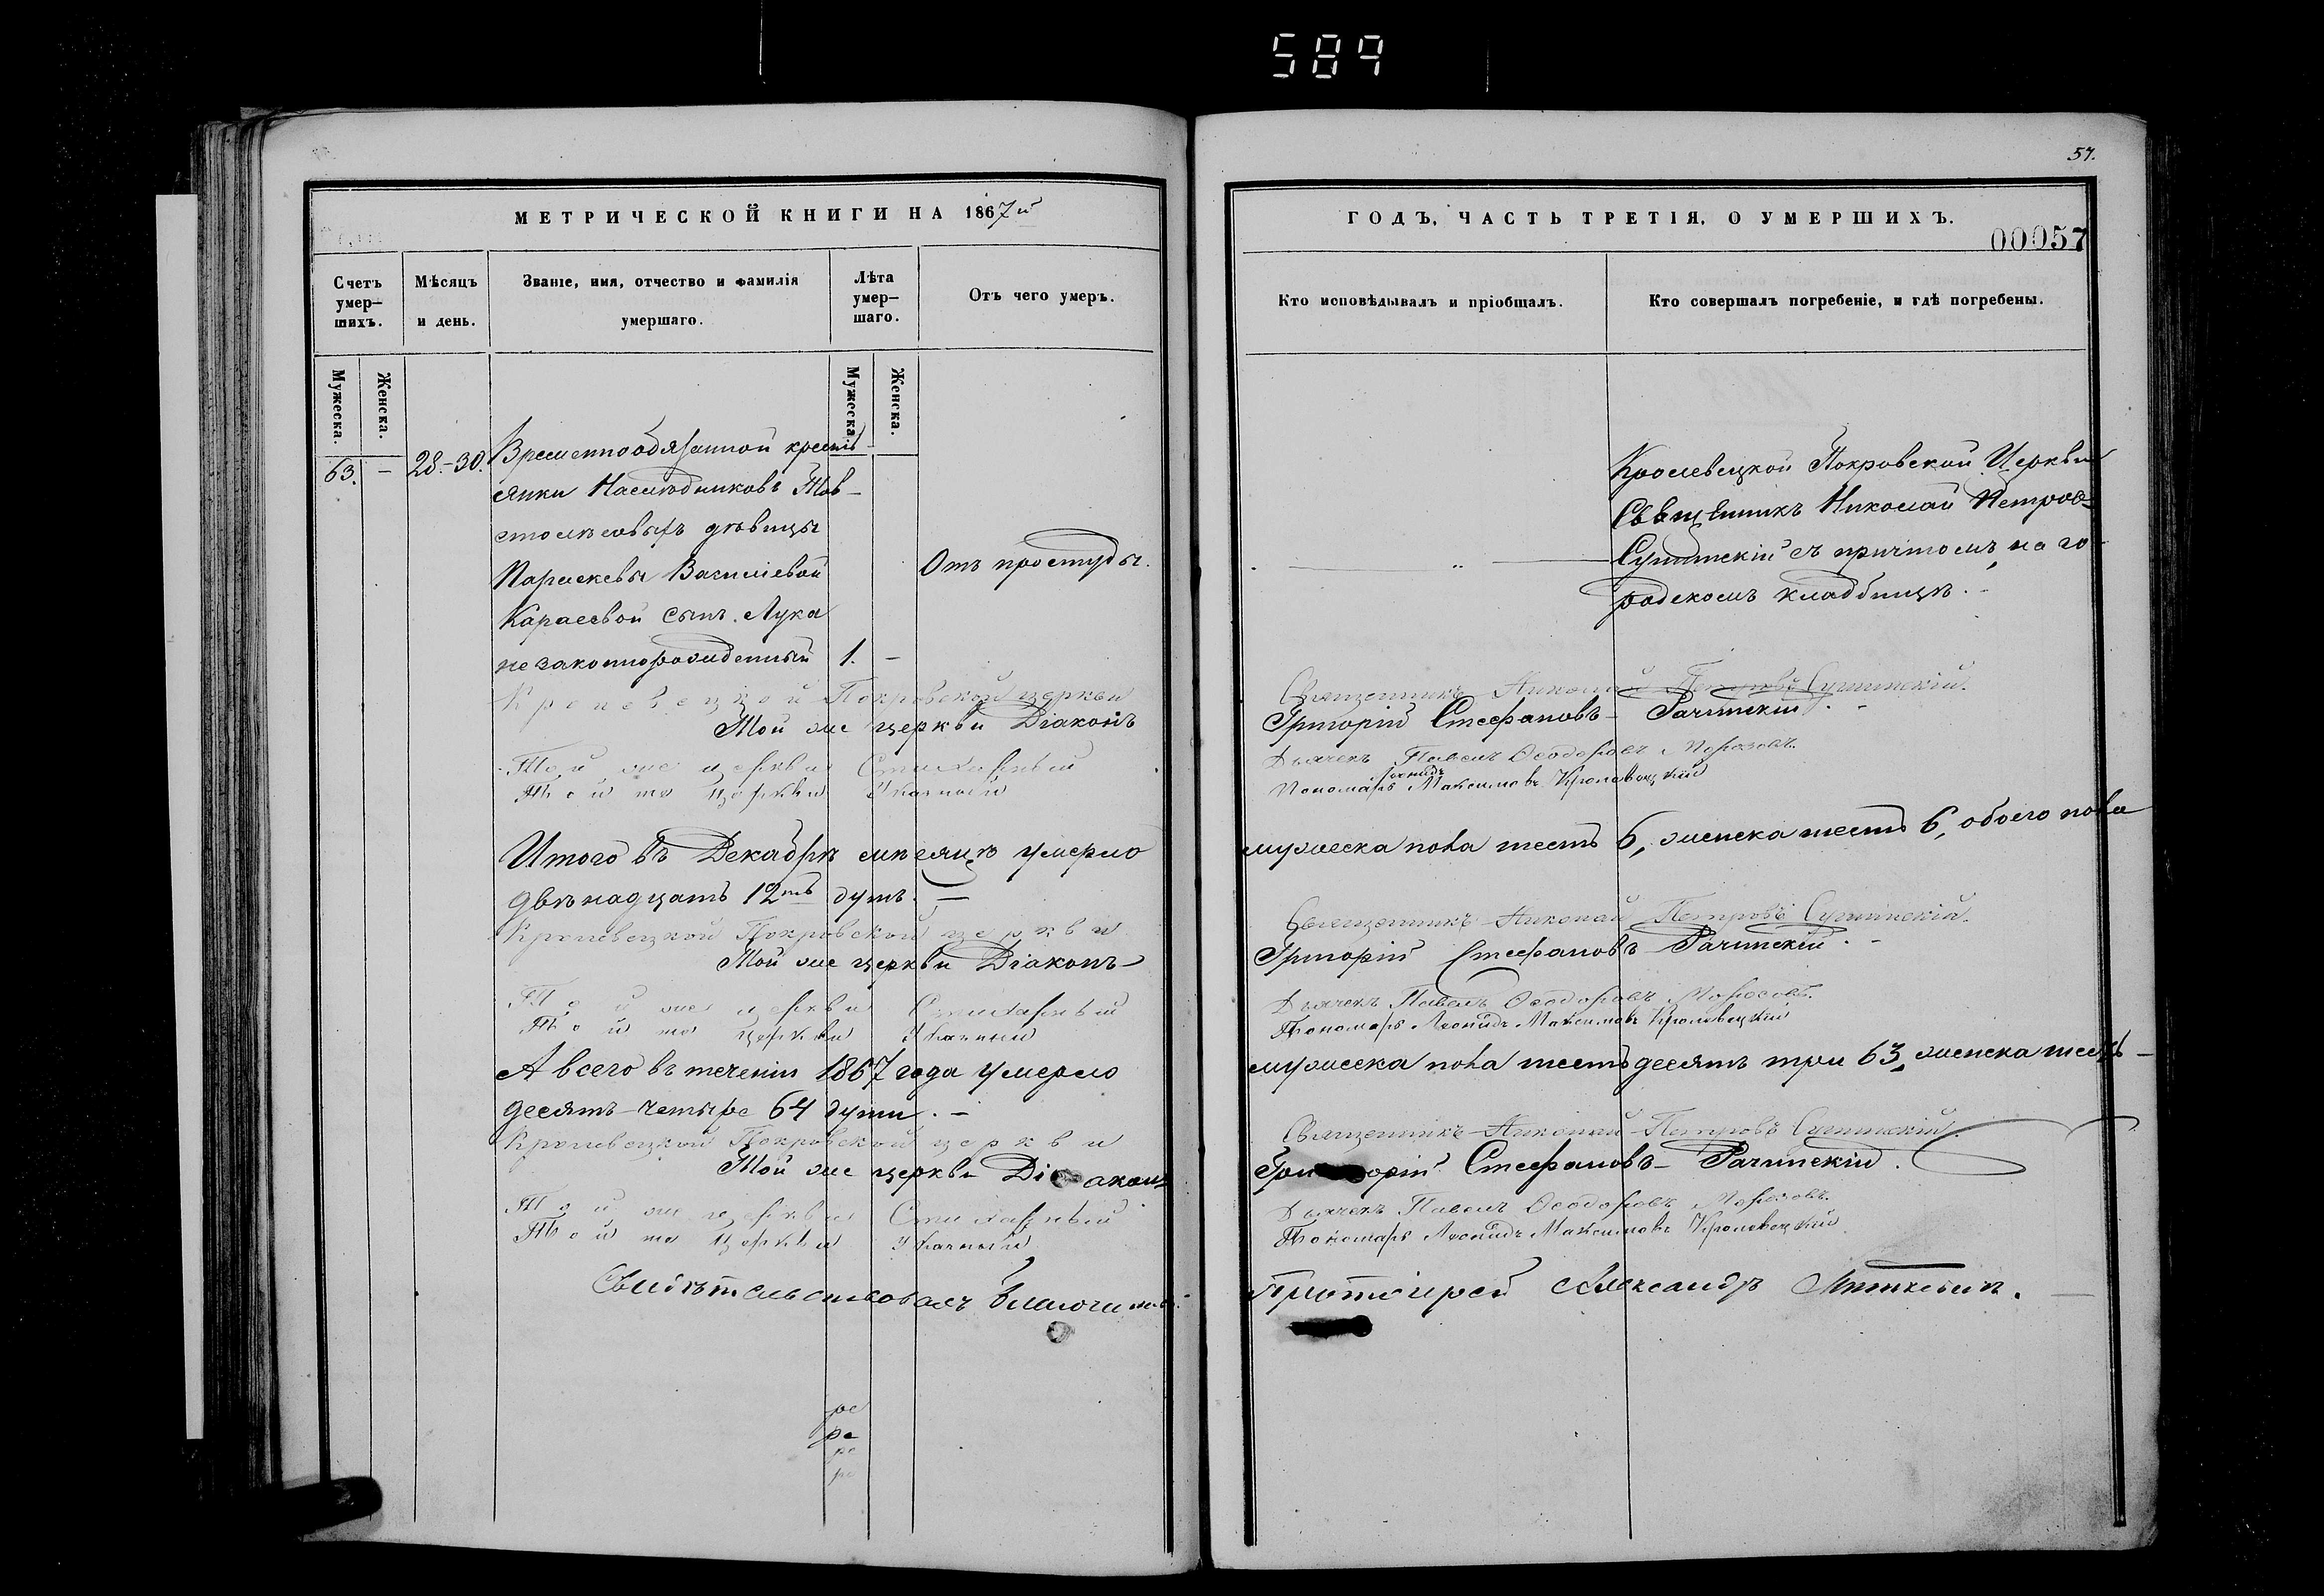 589
57.
МЕТРИЧЕСКОЙ КНИГИ НА 1867й
Счетъ умер-
шихъ.
Мѣсяцъ
и день.
Званіе, имя, отчество и фамилія
умершаго.
Лѣта
умер-
шаго.
Отъ чего умеръ.
Мужеска.
Женска.
Мужеска.
Женска.
63. - 28.-30. Временнообязанной кресть
янки Наслѣдниковъ Тов-
дѣвицы
Параскевы Василіевой
Караевой сынъ Лука
незаконнорожденный 1. -
Отъ простуды.
Кролевецкой Покровской церкви
Той же церкви Діаконъ
Той же церкви Стихарный
Той же церкви Указный
Итого въ Декабрѣ мѣсяцѣ умерло
двѣнадцать 12ть душъ. —
Кролевецкой Покровской церкви
Той же церкви Діаконъ
Той же церкви Стихарный
Той же церкви Указный
А всего въ теченіи 1867 года умерло
десятъ-четыре 64 души. -
Кролевецкой Покровской церкви
Той же церкви Діаконъ
Той же церкви Стихарный
Той же церкви Указный
Свидѣтельствовалъ
ре
ре
ре
ре
ГОДЪ, ЧАСТЬ ТРЕТІЯ, О УМЕРШИХЪ.
00057
Кто исповѣдывалъ и пріобщалъ.
Кто совершалъ погребеніе, и гдѣ погребены.
Кролевецкой Покровской Церкви
Священникъ Николай Петровъ
Сушинскій съ причтомъ, на го-
родскомъ кладбищѣ.
Священникъ Николай Петровъ Сушинскій.
Григорій Стефановъ - Рачинскій. -
Дьячекъ Павелъ Ѳеодоровъ Морозовъ.
Леонидъ
Пономарь Максимовъ Кролевецкій
мужеска пола шесть 6, женска шесть 6, обоего пола
Священникъ Николай Петровъ Сушинскій.
Григорій Стефановъ Рачинскій. -
Дьячекъ Павелъ Ѳеодоровъ Морозовъ.
Пономарь Леонидъ Максимовъ Кролевецкій
мужеска пола шестьдесятъ три 63, женска шесть-
Священникъ Николай Петровъ Сушинскій.
Григорій Стефановъ - Рачинскій.
Дьячекъ Павелъ Ѳеодоровъ Морозовъ.
Пономарь Леонидъ Максимовъ Кролевецкій
Протоіерей Александръ